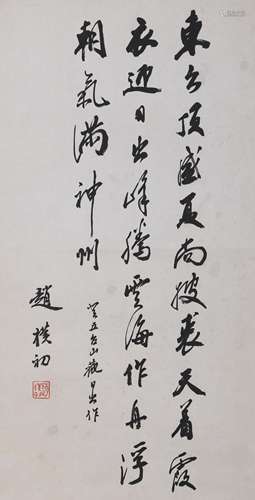 東台頂盛夏尚披裘天着霞
衣迎日出峰騰雲海作舟浮
朝氣滿神州
登五台山觀日出作
趙樸初